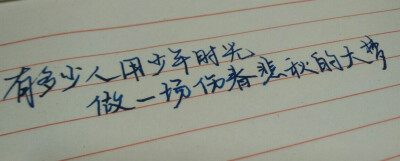 有多少人用少年时光
做一场伤春悲秋的大梦